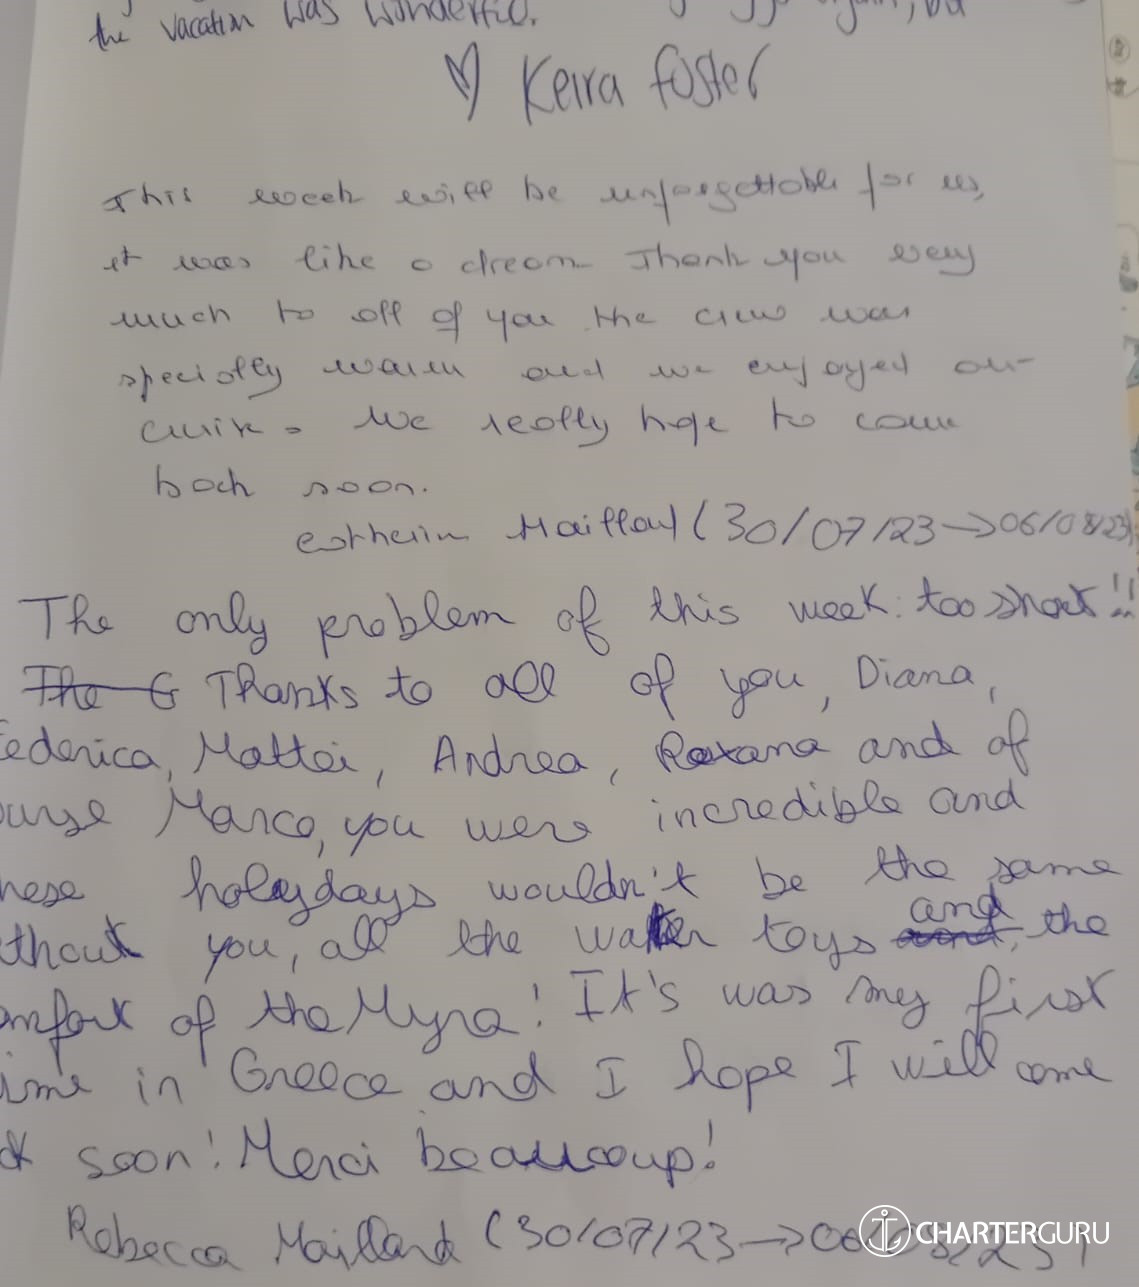 the vacation was wonderful.
♡ Keira Foster
This week will be unforgettable for us,
it was like a dream. Thank you very
much to all of you the crew was
specially warm and we enjoyed our
cuisine. We really hope to come
back soon.
Maillard (30/07/23 → 06/08/23)
The only problem of this week: too short!!
The G Thanks to all of you, Diana,
ederica, Mattei, Andrea, Roxana and of
ourse Marco, you were incredible and
hese holeydays wouldn't be the same
thout you, all the water toys and, the
mfort of the Myra! It's was my first
ime in Greece and I hope I will come
soon! Merci beaucoup!
Rebecca Maillard (30/07/23 → 06/08/23)
CHARTERGURU